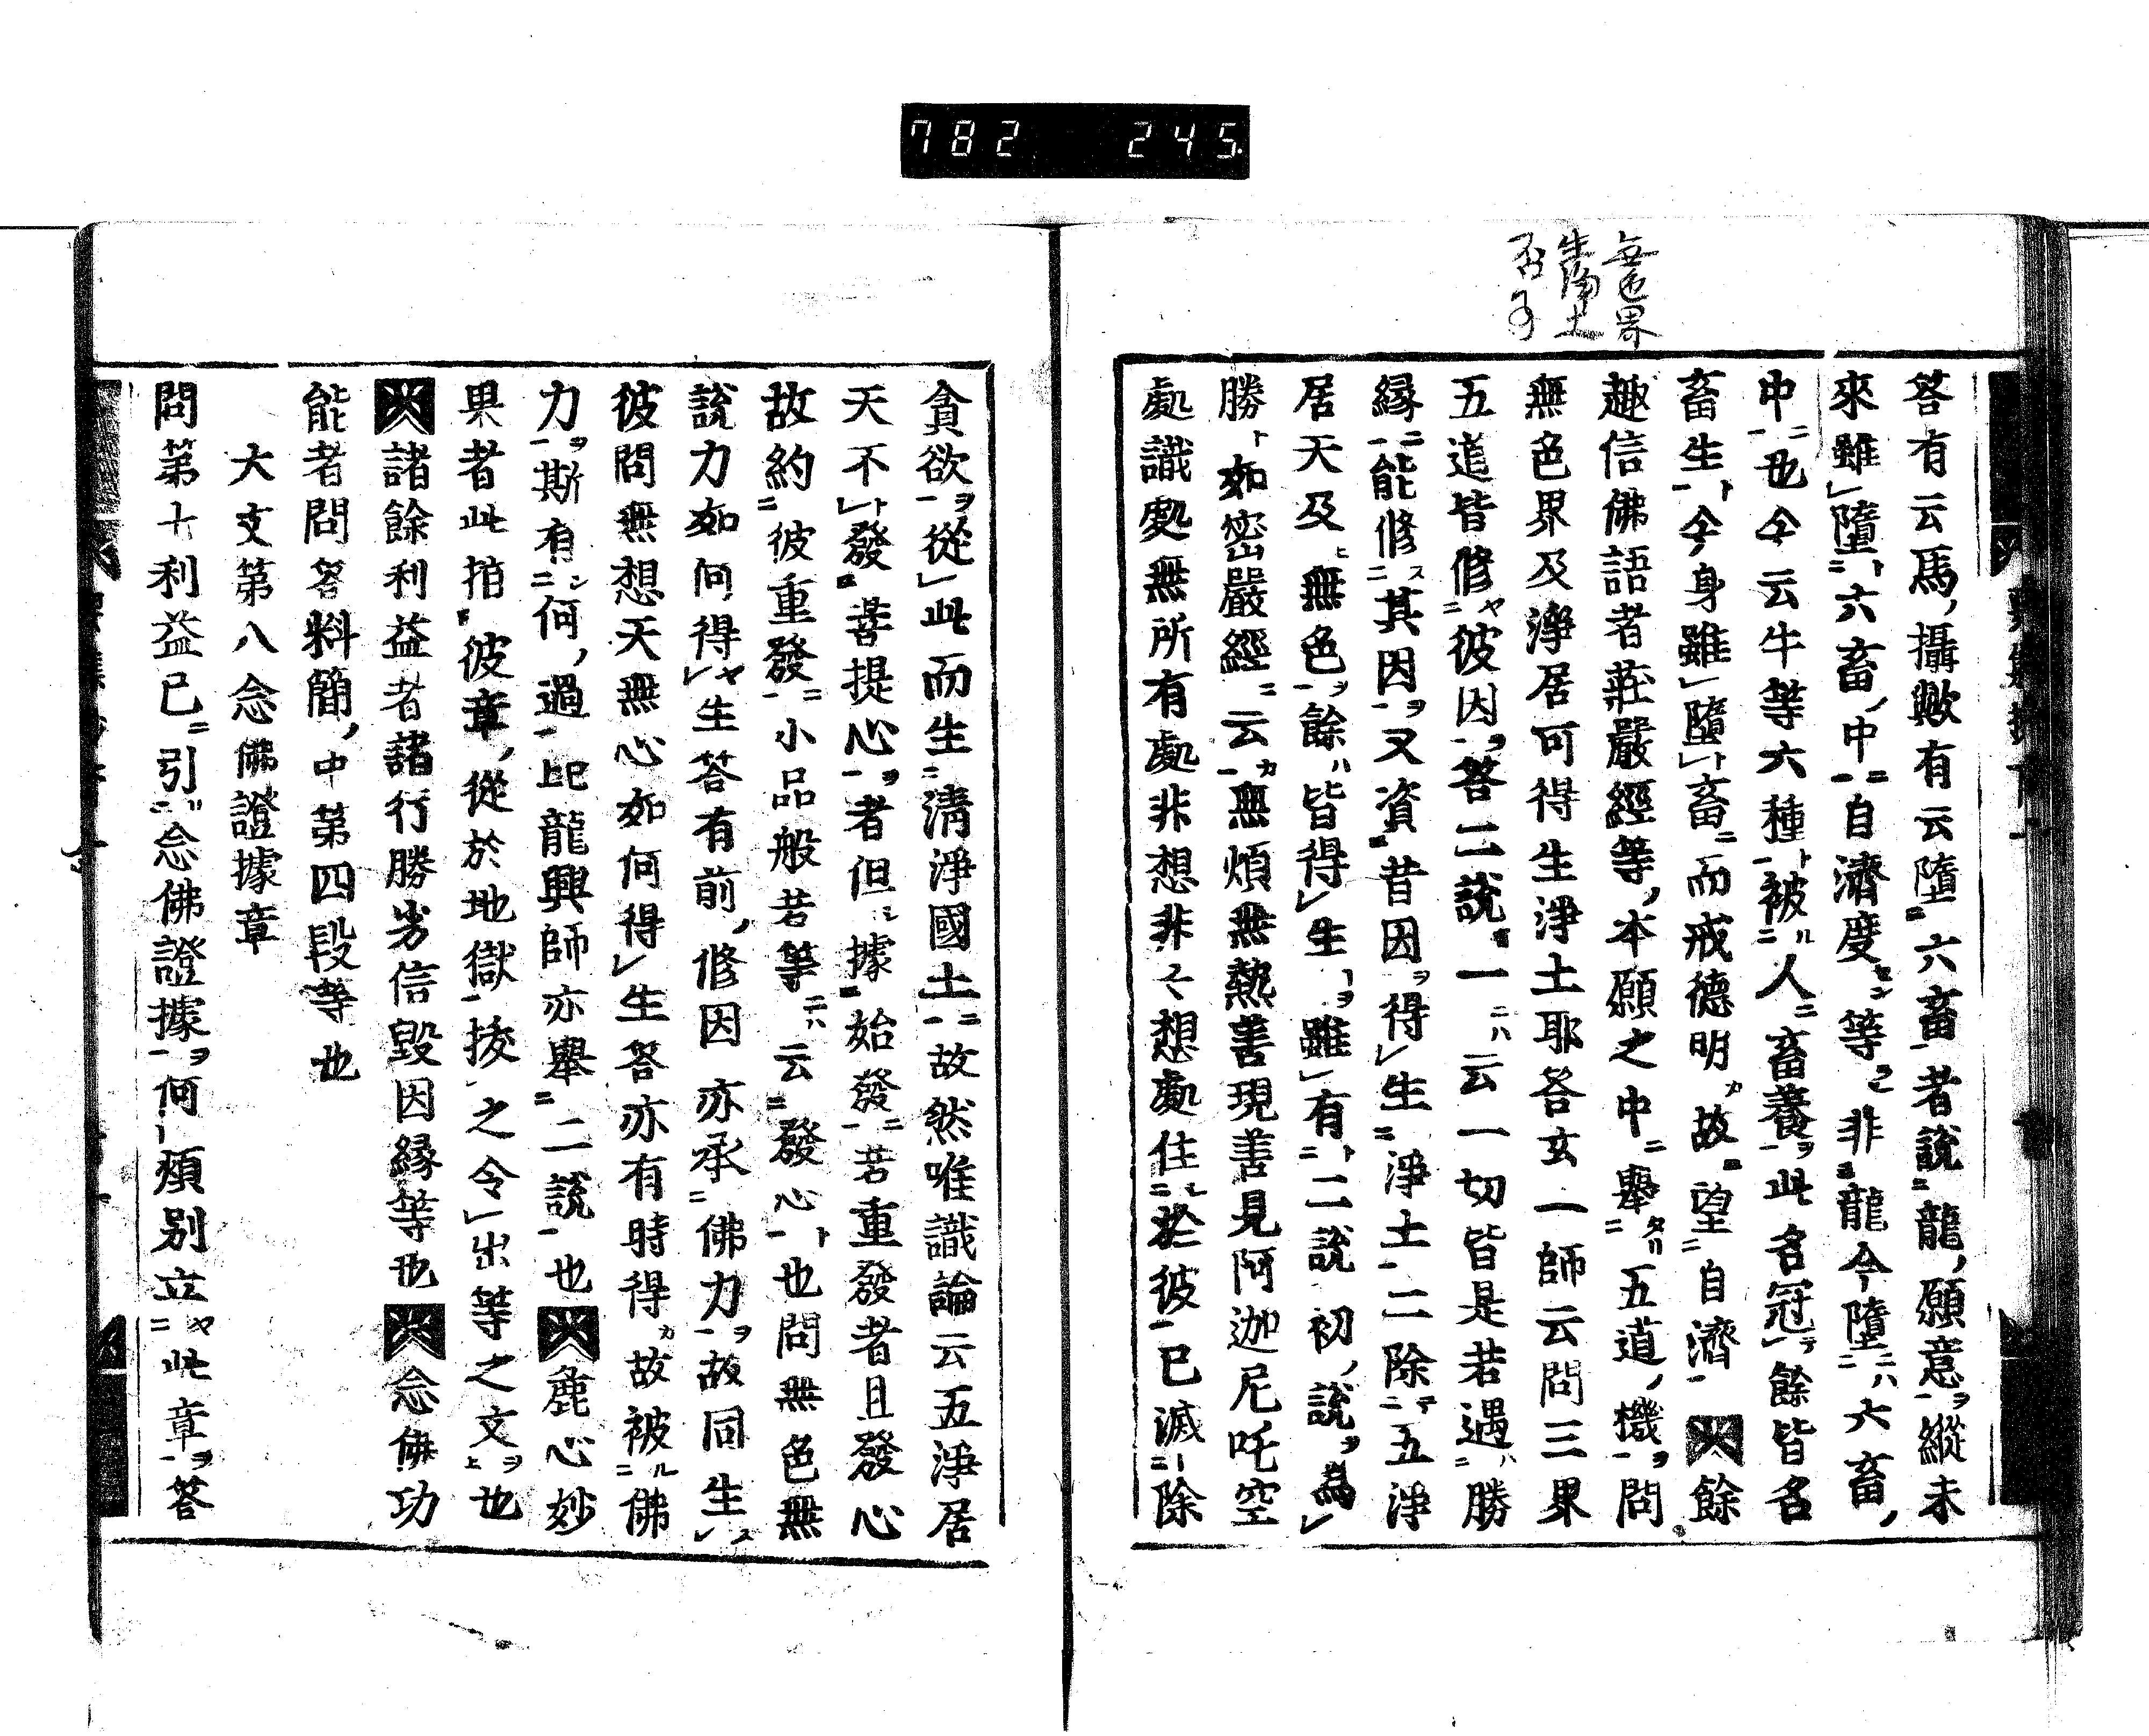 782 245
無色界
生淨土
否事
答有云馬攝歟有云墮六畜者說龍願意縱未
來雖墮六畜中自濟度等非龍今墮六畜
中也今云牛等六種被人畜養此名冠餘皆名
畜生今身雖墮畜而戒德明故望自濟 餘
趣信佛語者莊嚴經等本願之中舉五道機問
無色界及淨居可得生淨土耶答玄一師云問三果
五道皆修彼因答二說一云一切皆是若遇勝
緣能修其因又資昔因得生淨土二除五淨
居天及無色餘皆得生雖有二說初說為
勝如密嚴經云無煩無熱善現善見阿迦尼吒空
處識處無所有處非想非々想處住於彼已滅除
貪欲從此而生清淨國土故然唯識論云五淨居
天不發菩提心者但據始發若重發者且發心
故約彼重發小品般若等云發心也問無色無
說力如何得生答有前修因亦承佛力故同生
彼問無想天無心如何得生答亦有時得故被佛
力斯有何過記龍興師亦舉二說也 麁心妙
果者此拍彼章從於地獄按之令出等之文也
諸餘利益者諸行勝劣信毀因緣等也 念佛功
能者問答料簡中第四段等也
大文第八念佛證據章
問第十利益已引念佛證據何煩別立此章答